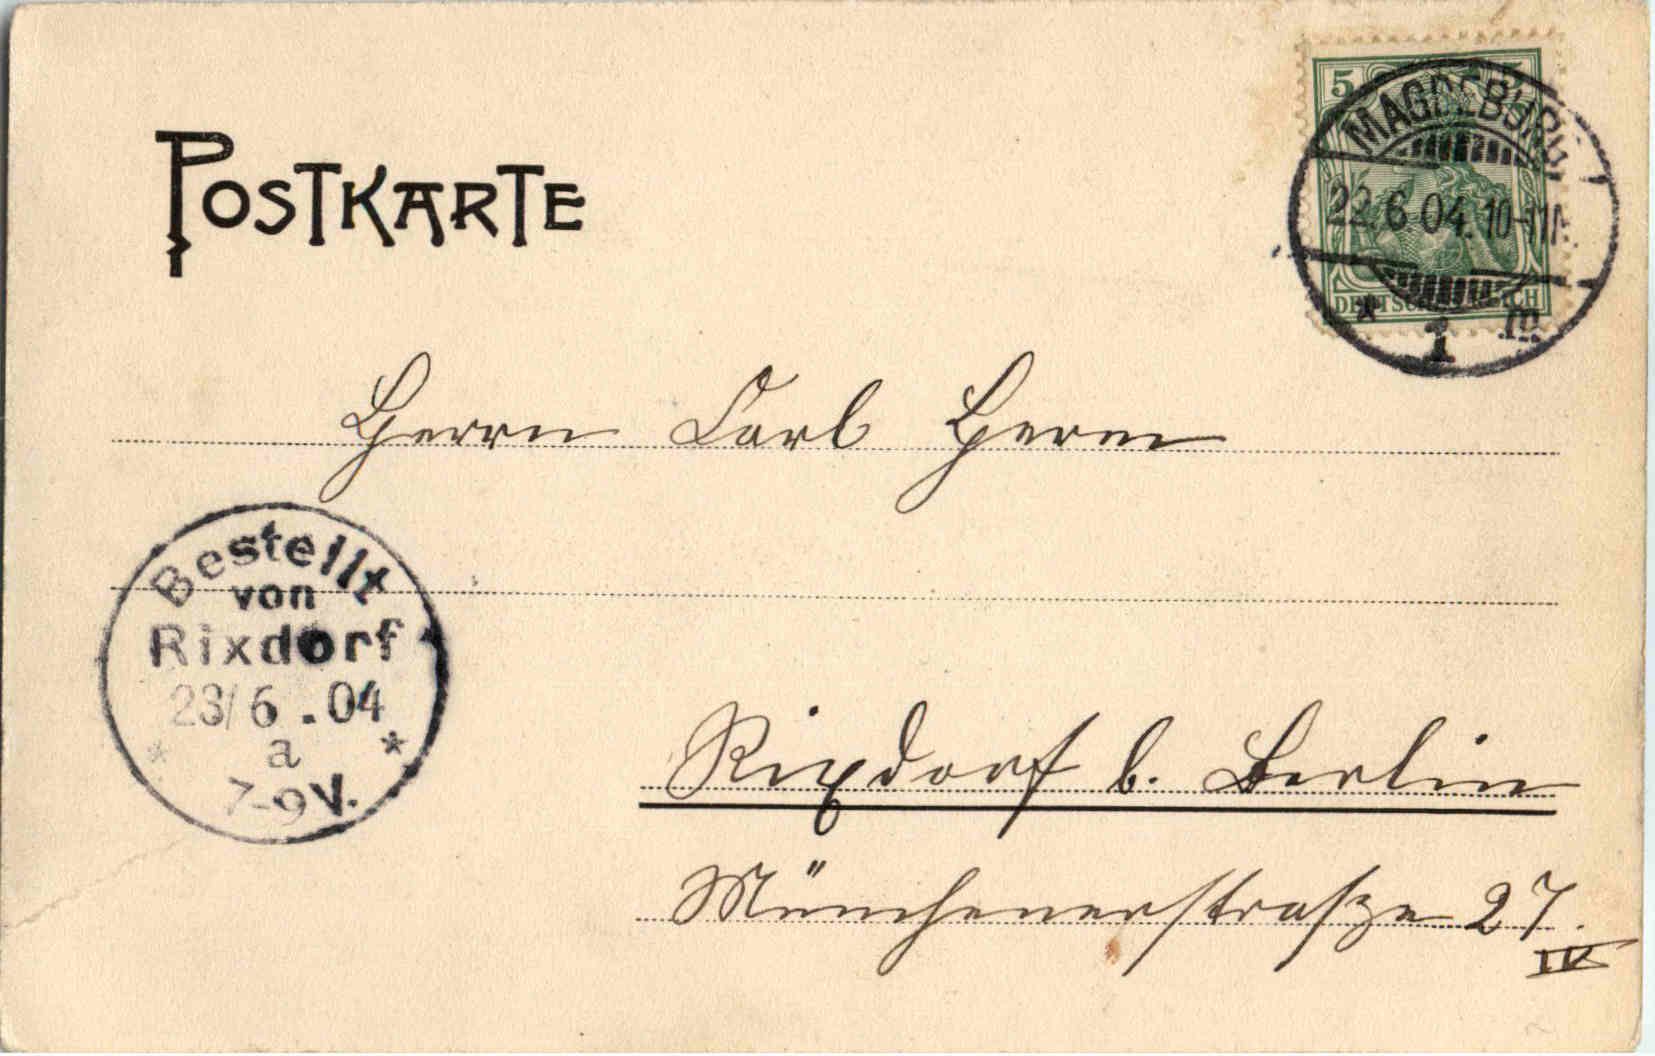 POSTKARTE
5 5
MAGDEBURG
22.6 04. 10-11N.
DEUTSCHES REICH
* 1 m
Herrn Carl Herm
Bestellt
von
Rixdorf
23/6.04
* a *
7-9V.
Rixdorf b. Berlin
Münchenerstraße 27.
IV